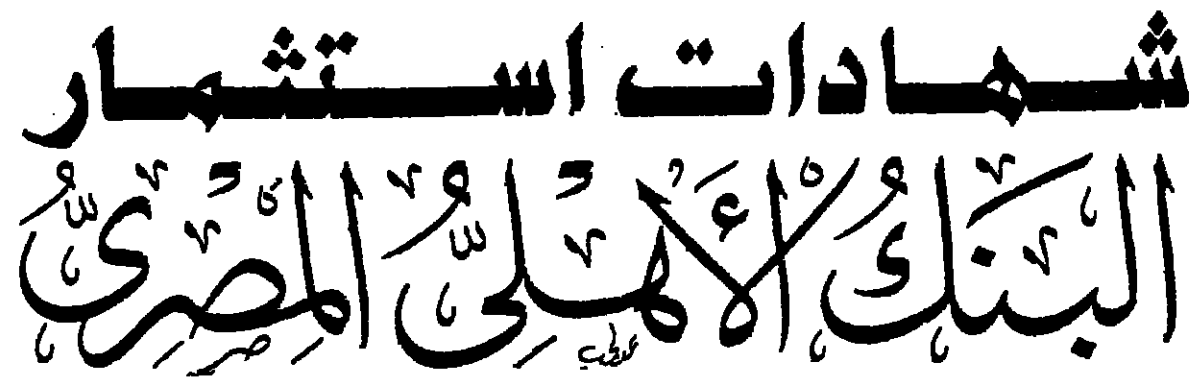 شهادات استثمار
البنك الأهلي المصري